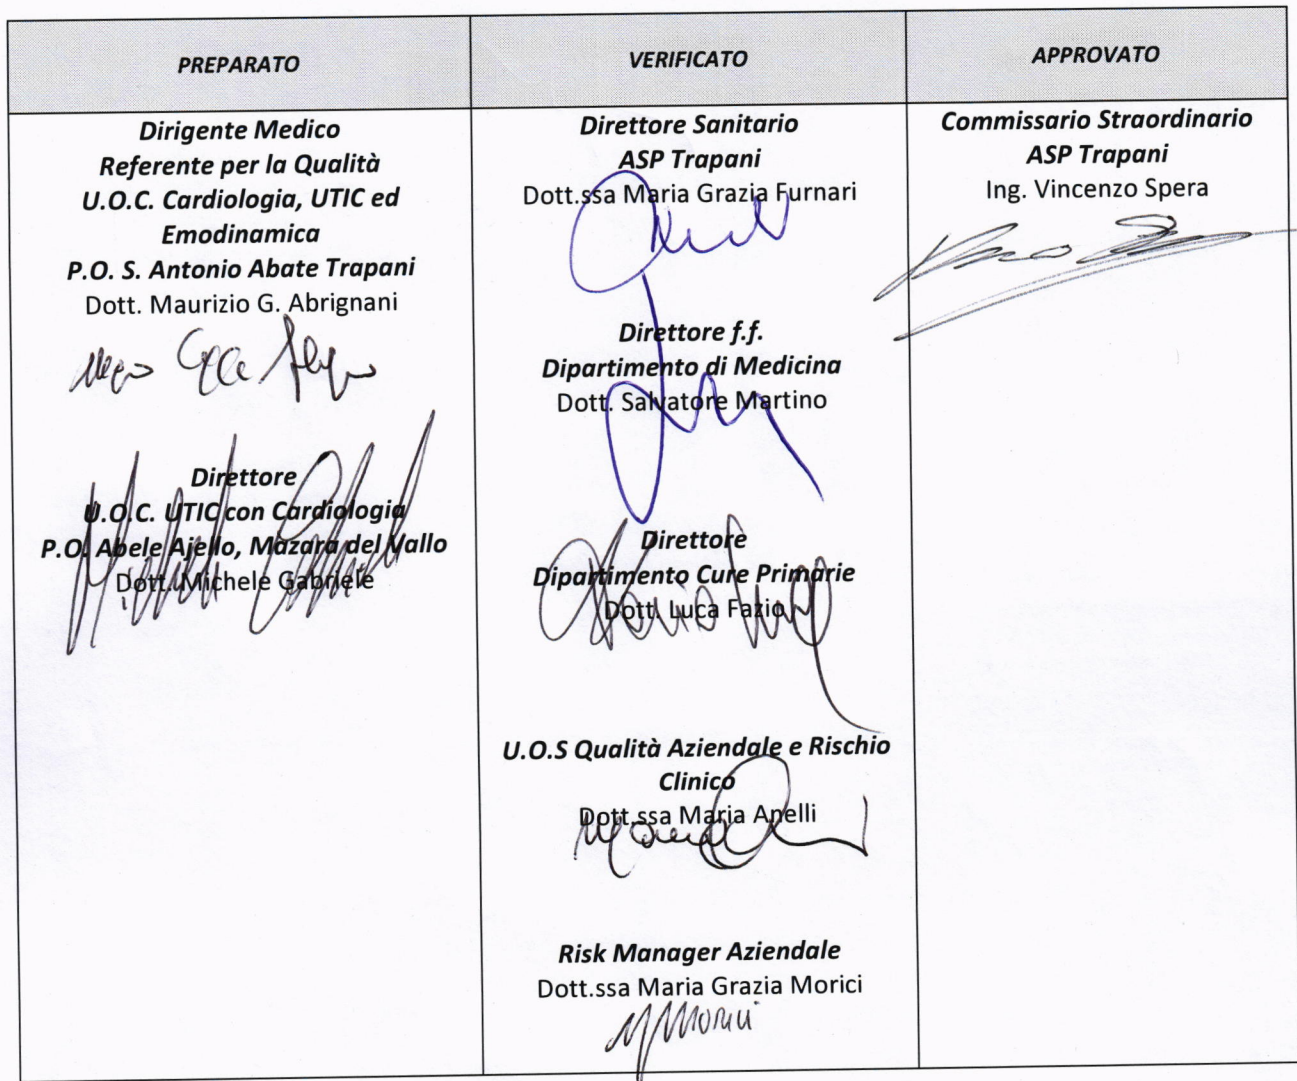 PREPARATO
VERIFICATO
APPROVATO
Dirigente Medico
Referente per la Qualità
U.O.C. Cardiologia, UTIC ed
Emodinamica
P.O. S. Antonio Abate Trapani
Dott. Maurizio G. Abrignani
Direttore
U.O.C. UTIC con Cardiologia
P.O. Abele Ajello, Mazara del Vallo
Dott. Michele Gabriele
Direttore Sanitario
ASP Trapani
Dott.ssa Maria Grazia Furnari
Direttore f.f.
Dipartimento di Medicina
Dott. Salvatore Martino
Direttore
Dipartimento Cure Primarie
Dott. Luca Fazio
U.O.S Qualità Aziendale e Rischio
Clinico
Dott.ssa Maria Anelli
Risk Manager Aziendale
Dott.ssa Maria Grazia Morici
Commissario Straordinario
ASP Trapani
Ing. Vincenzo Spera